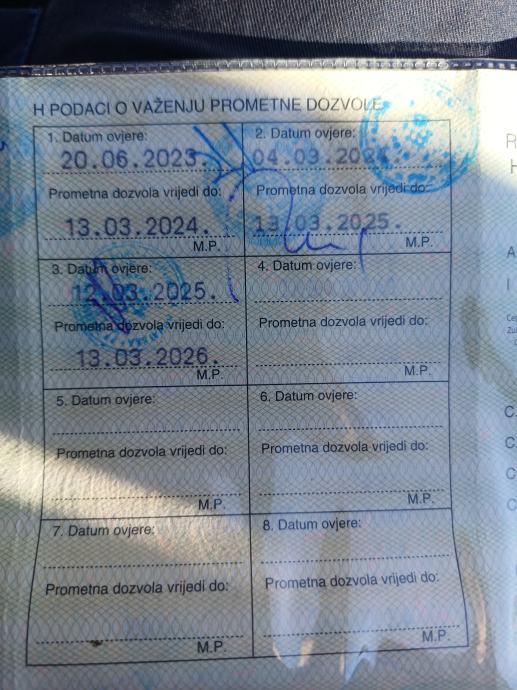 H PODACI O VAŽENJU PROMETNE DOZVOLE
1. Datum ovjere:
20.06.2023.
Prometna dozvola vrijedi do:
13.03.2024.
M.P.
2. Datum ovjere:
04.03.2024.
Prometna dozvola vrijedi do:
13.03.2025.
M.P.
3. Datum ovjere:
12.03.2025.
Prometna dozvola vrijedi do:
13.03.2026.
M.P.
4. Datum ovjere:
Prometna dozvola vrijedi do:
M.P.
5. Datum ovjere:
Prometna dozvola vrijedi do:
M.P.
6. Datum ovjere:
Prometna dozvola vrijedi do:
M.P.
7. Datum ovjere:
Prometna dozvola vrijedi do:
M.P.
8. Datum ovjere:
Prometna dozvola vrijedi do:
M.P.